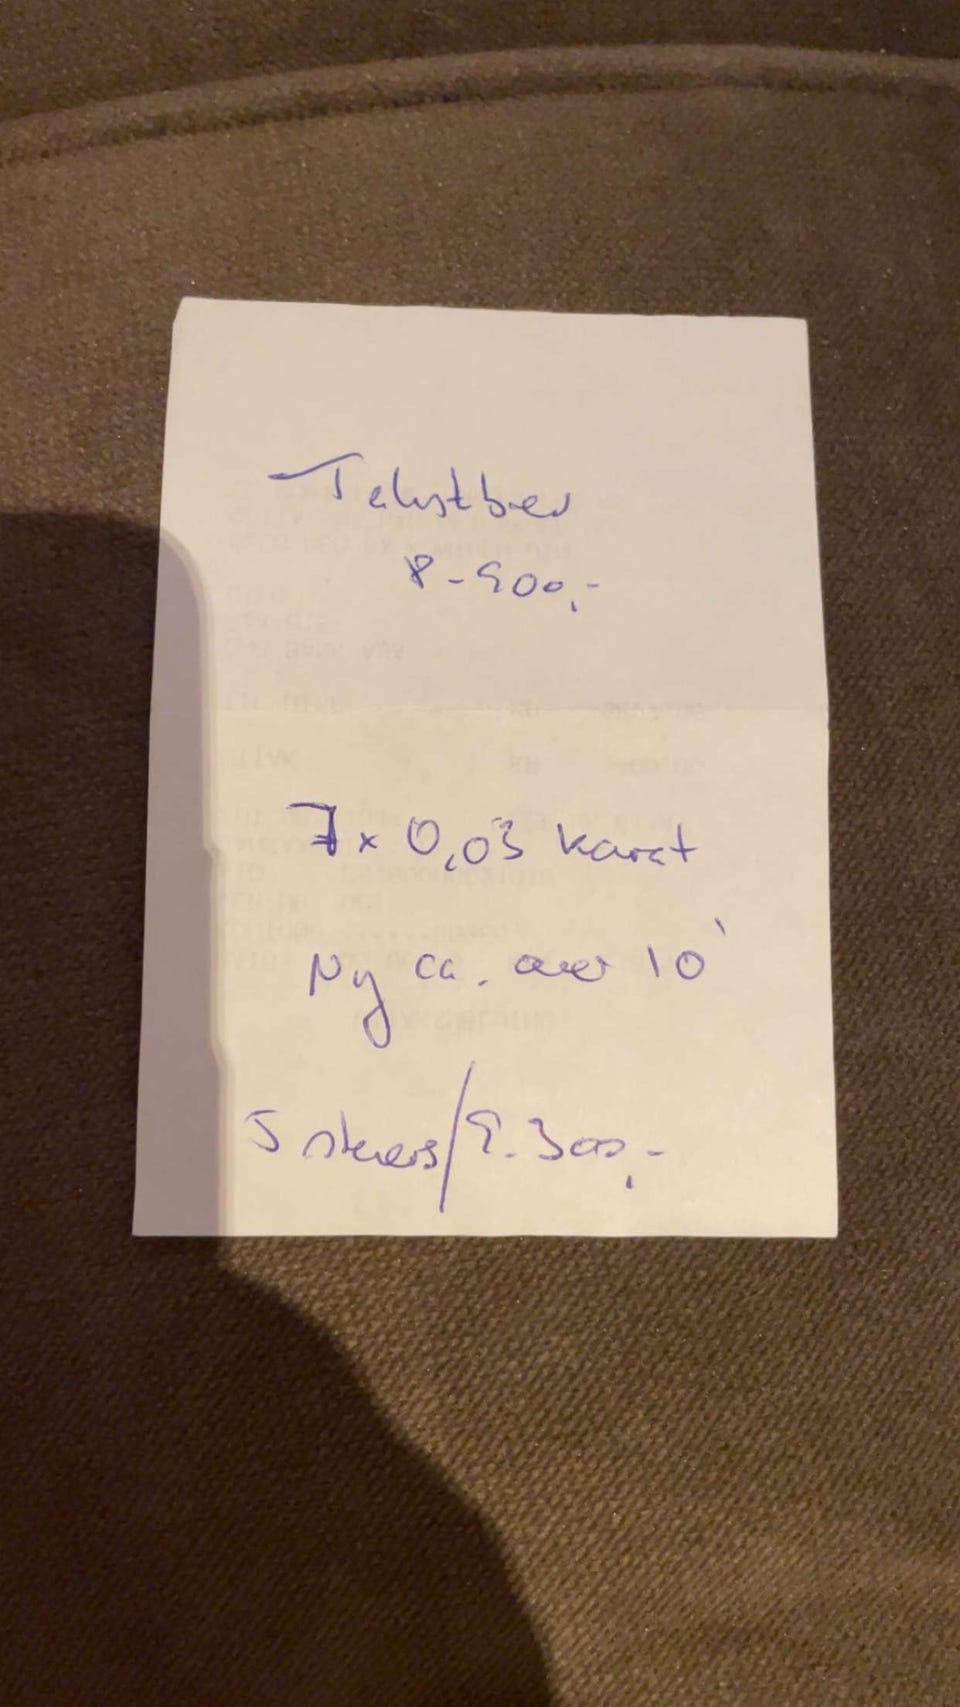 Takstbev
8-900,-
7 x 0,03 karat
Ny ca. over 10'
5 steners/9.300,-